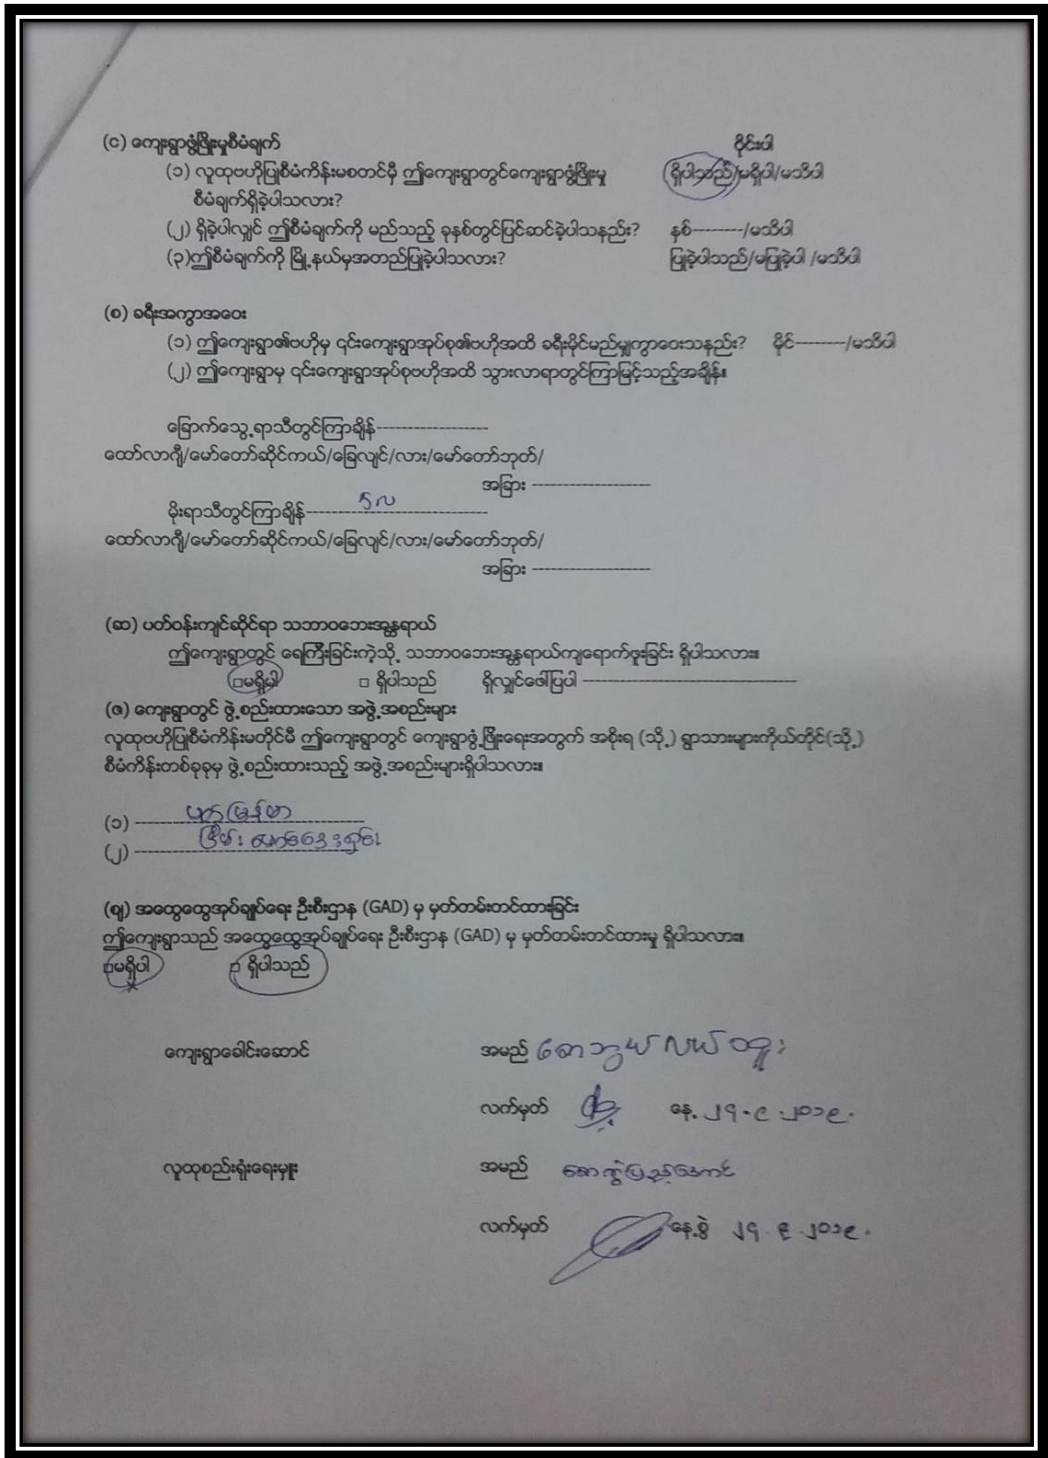 (င) ကျေးရွာဖွံ့ဖြိုးမှုစီမံချက် ဝိုင်းပါ
(၁) လူထုဗဟိုပြုစီမံကိန်းမစတင်မှီ ဤကျေးရွာတွင်ကျေးရွာဖွံ့ဖြိုးမှု ရှိပါသည်/မရှိပါ/မသိပါ
စီမံချက်ရှိခဲ့ပါသလား?
(၂) ရှိခဲ့ပါလျှင် ဤစီမံချက်ကို မည်သည့် ခုနှစ်တွင်ပြင်ဆင်ခဲ့ပါသနည်း? နှစ်---------/မသိပါ
(၃)ဤစီမံချက်ကို မြို့နယ်မှအတည်ပြုခဲ့ပါသလား? ပြုခဲ့ပါသည်/မပြုခဲ့ပါ /မသိပါ
(စ) ခရီးအကွာအဝေး
(၁) ဤကျေးရွာ၏ဗဟိုမှ ၎င်းကျေးရွာအုပ်စု၏ဗဟိုအထိ ခရီးမိုင်မည်မျှကွာဝေးသနည်း? မိုင်---------/မသိပါ
(၂) ဤကျေးရွာမှ ၎င်းကျေးရွာအုပ်စုဗဟိုအထိ သွားလာရာတွင်ကြာမြင့်သည့်အချိန်။
ခြောက်သွေ့ရာသီတွင်ကြာချိန်------------------
ထော်လာဂျီ/မော်တော်ဆိုင်ကယ်/ခြေလျင်/လား/မော်တော်ဘုတ်/
အခြား -------------------
မိုးရာသီတွင်ကြာချိန်-----------------------------
ထော်လာဂျီ/မော်တော်ဆိုင်ကယ်/ခြေလျင်/လား/မော်တော်ဘုတ်/
အခြား -------------------
(ဆ) ပတ်ဝန်းကျင်ဆိုင်ရာ သဘာဝဘေးအန္တရာယ်
ဤကျေးရွာတွင် ရေကြီးခြင်းကဲ့သို့ သဘာဝဘေးအန္တရာယ်ကျရောက်ဖူးခြင်း ရှိပါသလား။
□မရှိပါ □ ရှိပါသည် ရှိလျှင်ဖေါ်ပြပါ ----------------------------------
(ဇ) ကျေးရွာတွင် ဖွဲ့စည်းထားသော အဖွဲ့အစည်းများ
လူထုဗဟိုပြုစီမံကိန်းမတိုင်မီ ဤကျေးရွာတွင် ကျေးရွာဖွံ့ဖြိုးရေးအတွက် အစိုးရ (သို့) ရွာသားများကိုယ်တိုင်(သို့)
စီမံကိန်းတစ်ခုခုမှ ဖွဲ့စည်းထားသည့် အဖွဲ့အစည်းများရှိပါသလား။
(၁) မြန်မာ
(၂) ငြိမ်း
(ဈ) အထွေထွေအုပ်ချုပ်ရေး ဦးစီးဌာန (GAD) မှ မှတ်တမ်းတင်ထားခြင်း
ဤကျေးရွာသည် အထွေထွေအုပ်ချုပ်ရေး ဦးစီးဌာန (GAD) မှ မှတ်တမ်းတင်ထားမှု ရှိပါသလား။
□မရှိပါ □ ရှိပါသည်
ကျေးရွာခေါင်းဆောင် အမည် စောဘွယ်လယ်ထူး
လက်မှတ် နေ့ ၂၄.၉.၂၀၁၉.
လူထုစည်းရုံးရေးမှူး အမည်
လက်မှတ် နေ့စွဲ ၂၄.၉.၂၀၁၉.